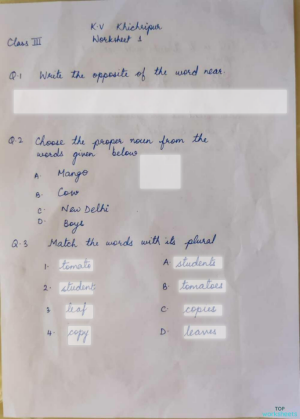 K.V Khichripur
Class III Worksheet 1
Q.1 Write the opposite of the word near.
Q.2 Choose the proper noun from the
words given below
A. Mango
B. Cow
C. New Delhi
D. Boys
Q.3 Match the words with its plural
1. tomato A. students
2. student B. tomatoes
3. leaf C. copies
4. copy D. leaves
TOP